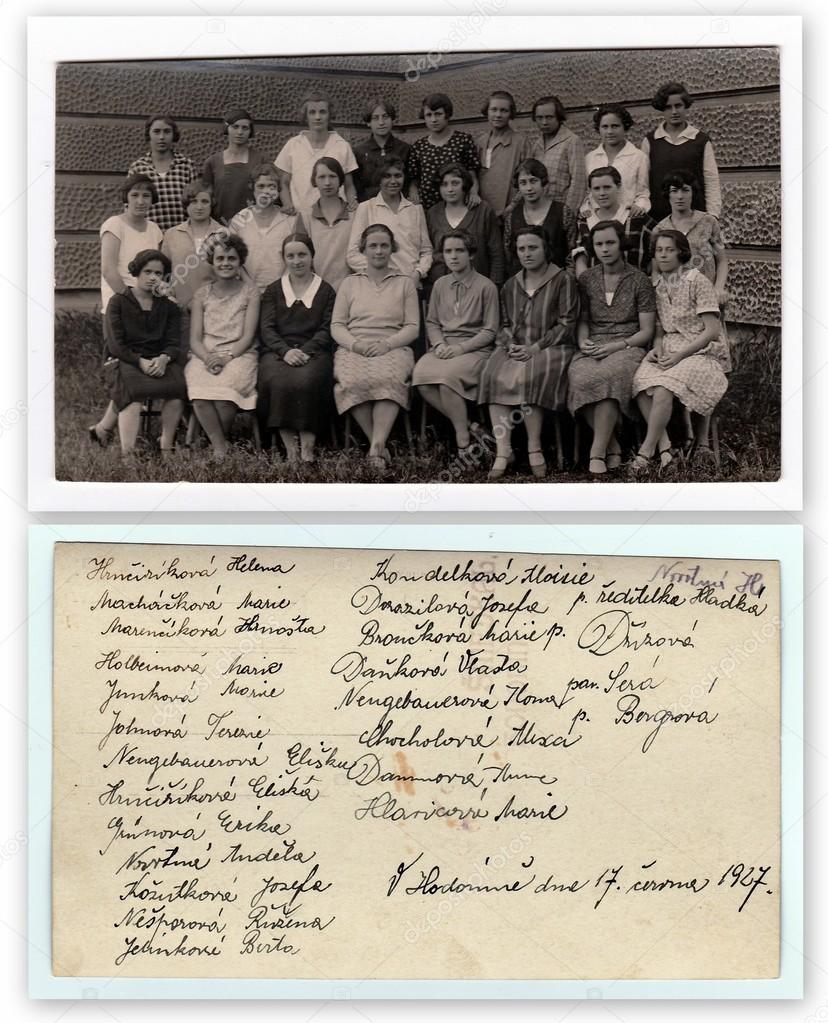 Hrnčiříková Helena
Macháčková Marie
Marenčíková Hrnosta
Holbeimová Marie
Junková Marie
Johnová Terezie
Neugebauerová Eliška
Hrnčiříková Eliška
Grünová Erika
Novotná Anděla
Kožutková Josefa
Nešporová Růžena
Jelínková Berta
Koudelková Aloisie
Dorazilová Josefa
Broučková Marie
Daňková Vlasta
Neugebauerová Ilona
Chocholová
Dammová
Hlavicová Marie
Novotná H
p. ředitelka Hladká
p. Držová
pan. Šerá
p. Bergrová
V Hodoníně dne 17. června 1927.
depositphotos